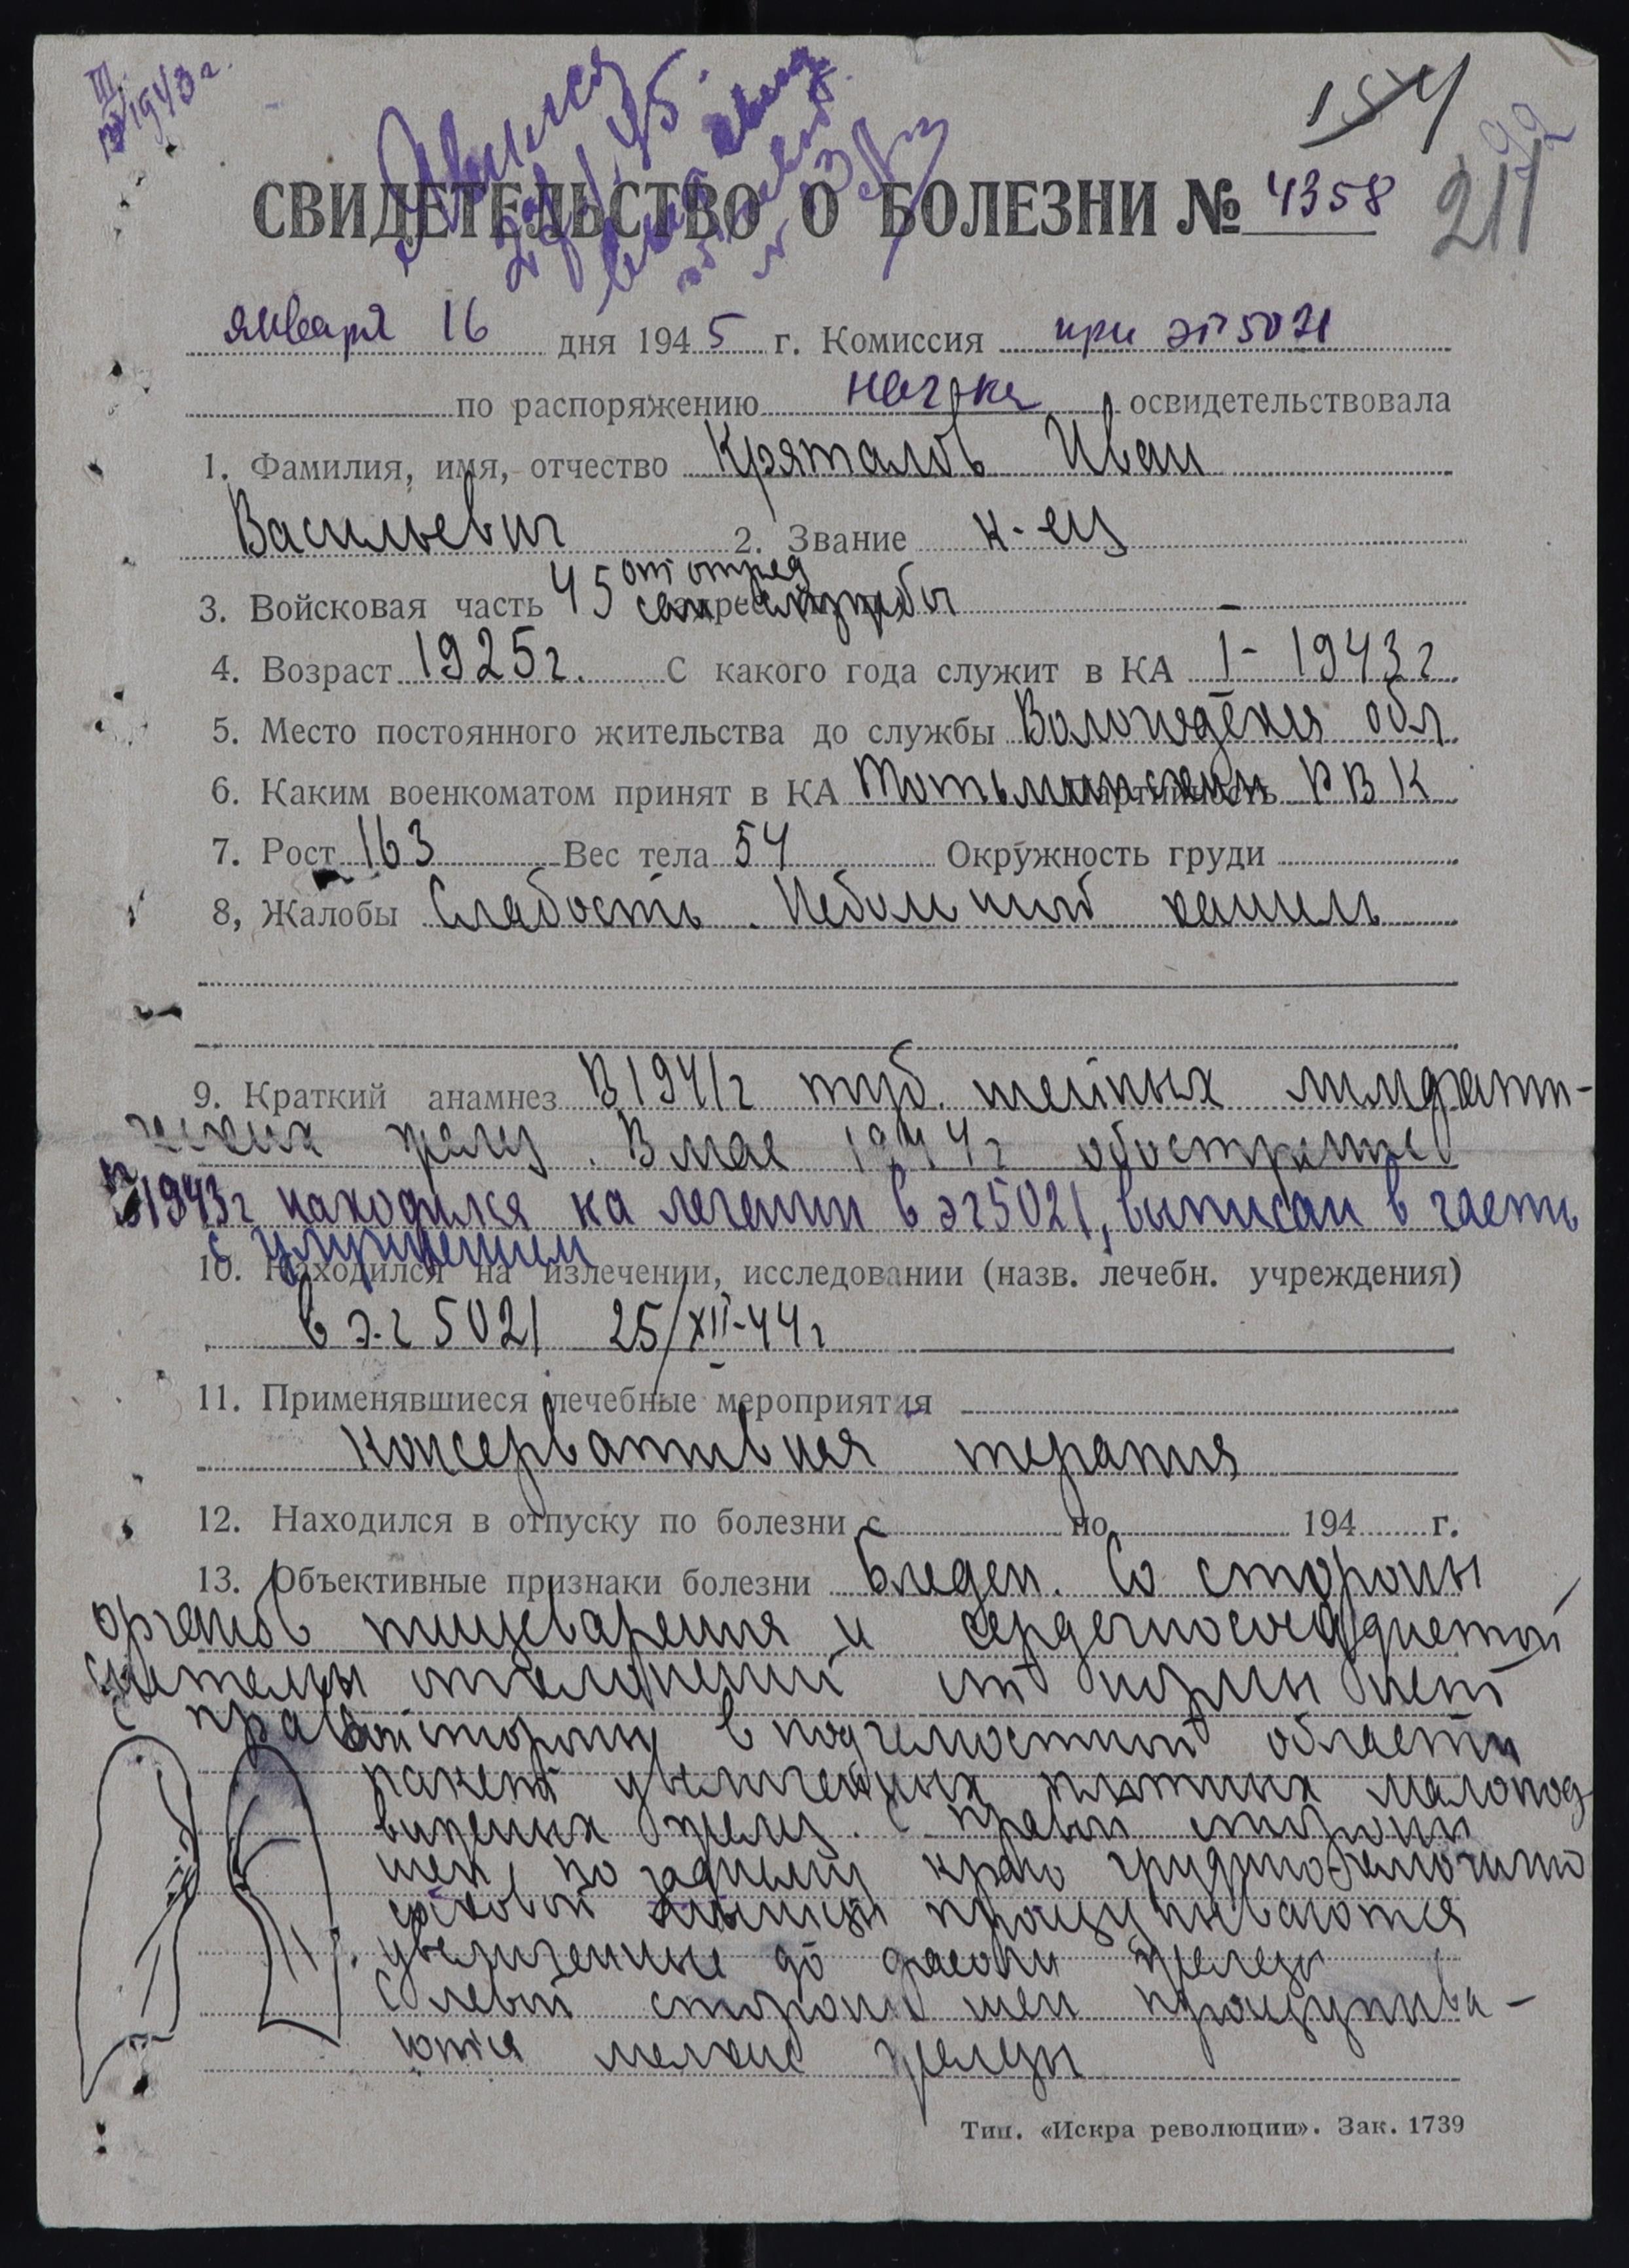 III 1943 г.
Явился
154
211
СВИДЕТЕЛЬСТВО О БОЛЕЗНИ № 4358
января 16 дня 1945 г. Комиссия при эг 5021
по распоряжению нач-ка освидетельствовала
1. Фамилия, имя, отчество Кряталов Иван
Васильевич 2. Звание к-ец
3. Войсковая часть 45 от отряд
службы
4. Возраст 1925 г. С какого года служит в КА I-1943 г
5. Место постоянного жительства до службы Вологодская обл
6. Каким военкоматом принят в КА Тотьминским РВК
7. Рост 163 Вес тела 54 Окружность груди
8, Жалобы Слабость. Небольшой кашель
9. Краткий анамнез В 1941 г туб. шейных лимфати-
ческих желез. В мае 1944 г обострение
В 1943 г находился на лечении в эг 5021, выписан в часть
с улучшением
10. Находился на излечении, исследовании (назв. лечебн. учреждения)
в э.г 5021 25/XII-44 г
11. Применявшиеся лечебные мероприятия
консервативная терапия
12. Находился в отпуску по болезни с по 194 г.
13. Объективные признаки болезни бледен. Со стороны
органов пищеварения и сердечнососудистой
системы отклонений от нормы нет
С правой стороны в подчелюстной области
пакет увеличенных плотных малопод
вижных желез. С правой стороны
шеи, по заднему краю грудно-ключично
сосковой мышцы прощупываются
увеличенные до фасоли железы
С левой стороны шеи прощупыва-
ются мелкие железы
Тип. «Искра революции». Зак. 1739